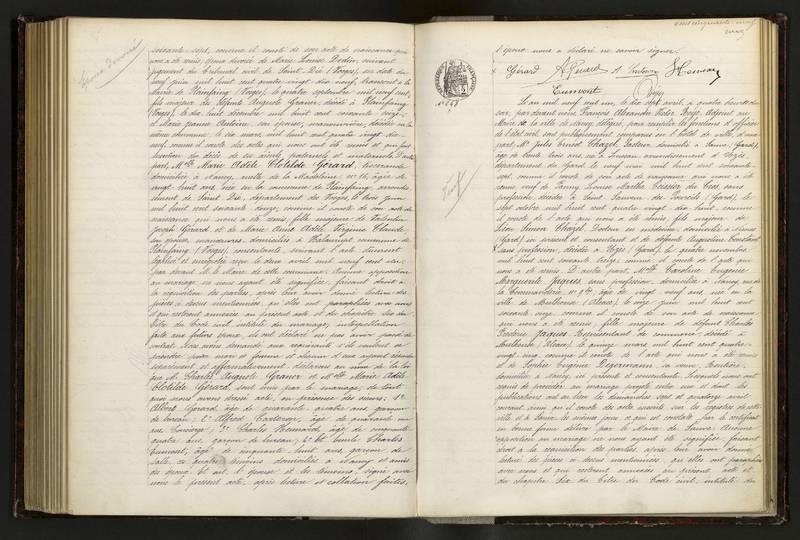 soixante sept, comme il conste de son acte de naissance qui
nous a été remis, époux divorcé de Marie Louise Dodin, suivant
jugement du Tribunal civil de Saint-Dié (Vosges), en date du
neuf juin mil huit cent quatre vingt dix neuf, transcrit à la
Mairie de Plainfaing (Vosges), le quatre septembre mil neuf cent,
fils majeur des défunts Auguste Graner, décédé à Plainfaing
(Vosges), le dix huit décembre mil huit cent soixante
et Marie Jeanne Antoine, son épouse, manouvrière, décédée en la
même commune, le six mars mil huit cent quatre vingt dix
neuf, comme il conste des actes qui nous ont été remis et qui font
mention du décès de ses aïeuls paternels et maternels. D'autre
part, Mlle Marie Adèle Clotilde Gérard, Servante,
domiciliée à Nancy, ruelle de la Madeleine, nº 16, âgée de
vingt huit ans, née en la commune de Plainfaing, arrondis-
sement de Saint Dié, département des Vosges, le trois juin
mil huit cent soixante douze, comme il conste de son acte de
naissance qui nous a été remis, fille majeure de Valentin
Joseph Gérard et de Marie Anne Adèle Virginie Claude
son épouse, manœuvres, domiciliés à Habaurupt, commune de
Plainfaing (Vosges), consentants, suivant l'acte dûment
légalisé et enregistré reçu le deux avril mil neuf cent un,
par devant M. le Maire de cette commune. Aucune opposition
au mariage ne nous ayant été signifiée, faisant droit à
la réquisition des parties, après leur avoir donné lecture des
pièces ci dessus mentionnées, qu'elles ont paraphées avec nous
et qui restent annexées au présent acte et du chapitre six du
titre du Code civil, intitulé du mariage, interpellation
faite aux futurs époux, ils ont déclaré ne pas avoir passé de
contrat. Nous avons demandé aux requérants s'ils veulent se
prendre pour mari et femme et chacun d'eux ayant répondu
séparément et affirmativement, déclarons au nom de la loi
que M. Charles Auguste Graner et Mlle Marie Adèle
Clotilde Gérard, sont unis par le mariage; de tout
quoi nous avons dressé acte, en présence des sieurs: 1º
Albert Gérard, âgé de quarante quatre ans, garçon
de bureau; 2º Alfred
3º Charles Hémard, âgé de cinquante
quatre ans, garçon de bureau; 4º et Emile Charles
Cumont, âgé de cinquante huit ans, garçon de
salle, ces quatre témoins domiciliés à Nancy et amis
des époux. Et ont l'époux et les témoins, signé avec
nous le présent acte, après lecture et collation faites,
l'épouse nous a déclaré ne savoir signer.
Gérard
Nº 248
Le an mil neuf cent un, le dix sept avril, à quatre heures du
soir, par devant nous François Alexandre Victor Boije, Adjoint au
Maire de la ville de Nancy, délégué, pour remplir les fonctions d'officier
de l'état civil, sont publiquement comparus en l'hôtel de ville, d'une
part, Mr Jules Ernest Chazel, Pasteur, domicilié à Sauve (Gard),
âgé de trente trois ans, né à
département du Gard, le neuf mai mil huit cent soixante
sept, comme il conste de son acte de naissance qui nous a été
remis, veuf de Fanny Louise Marthe Teissier du Cros, sans
profession, décédée à
sept octobre mil huit cent quatre vingt dix huit, comme
il conste de l'acte qui nous a été remis, fils majeur de
Léon Simon Chazel, Docteur en médecine, domicilié à
(Gard), ici présent et consentant et de défunte Augustine
sans profession, décédée à Alais (Gard), le quatre novembre
mil huit cent soixante treize, comme il conste de l'acte qui
nous a été remis. D'autre part, Mlle Caroline Eugénie
Marguerite Jaques, sans profession, domiciliée à Nancy, rue de
la Commanderie, âgée de vingt neuf ans, née en la
ville de Mulhouse (Alsace), le onze juin mil huit cent
soixante onze, comme il conste de son acte de naissance
que nous a été remis, fille majeure de défunt Charles
Frédéric Jaques, Représentant de commerce, décédé à
Mulhouse (Alsace), le quinze mars mil huit cent quatre
vingt cinq, comme il conste de l'acte qui nous a été remis
et de Sophie Eugénie Degermann, sa veuve, Rentière,
domiciliée à Nancy, ici présente et consentante. Lesquels nous ont
requis de procéder au mariage projeté entre eux et dont les
publications ont eu lieu les dimanches sept et quatorze avril
courant, ainsi qu'il conste des actes inscrits sur les registres de cette
ville et à Sauve les mêmes jours, et qui est constaté par le certificat
en bonne forme délivré par le Maire de Sauve. Aucune
opposition au mariage ne nous ayant été signifiée, faisant
droit à la réquisition des parties, après leur avoir donné
lecture des pièces ci dessus mentionnées, qu'elles ont paraphées
avec nous et qui restent annexées au présent acte et
du chapitre six du titre du Code civil, intitulé du